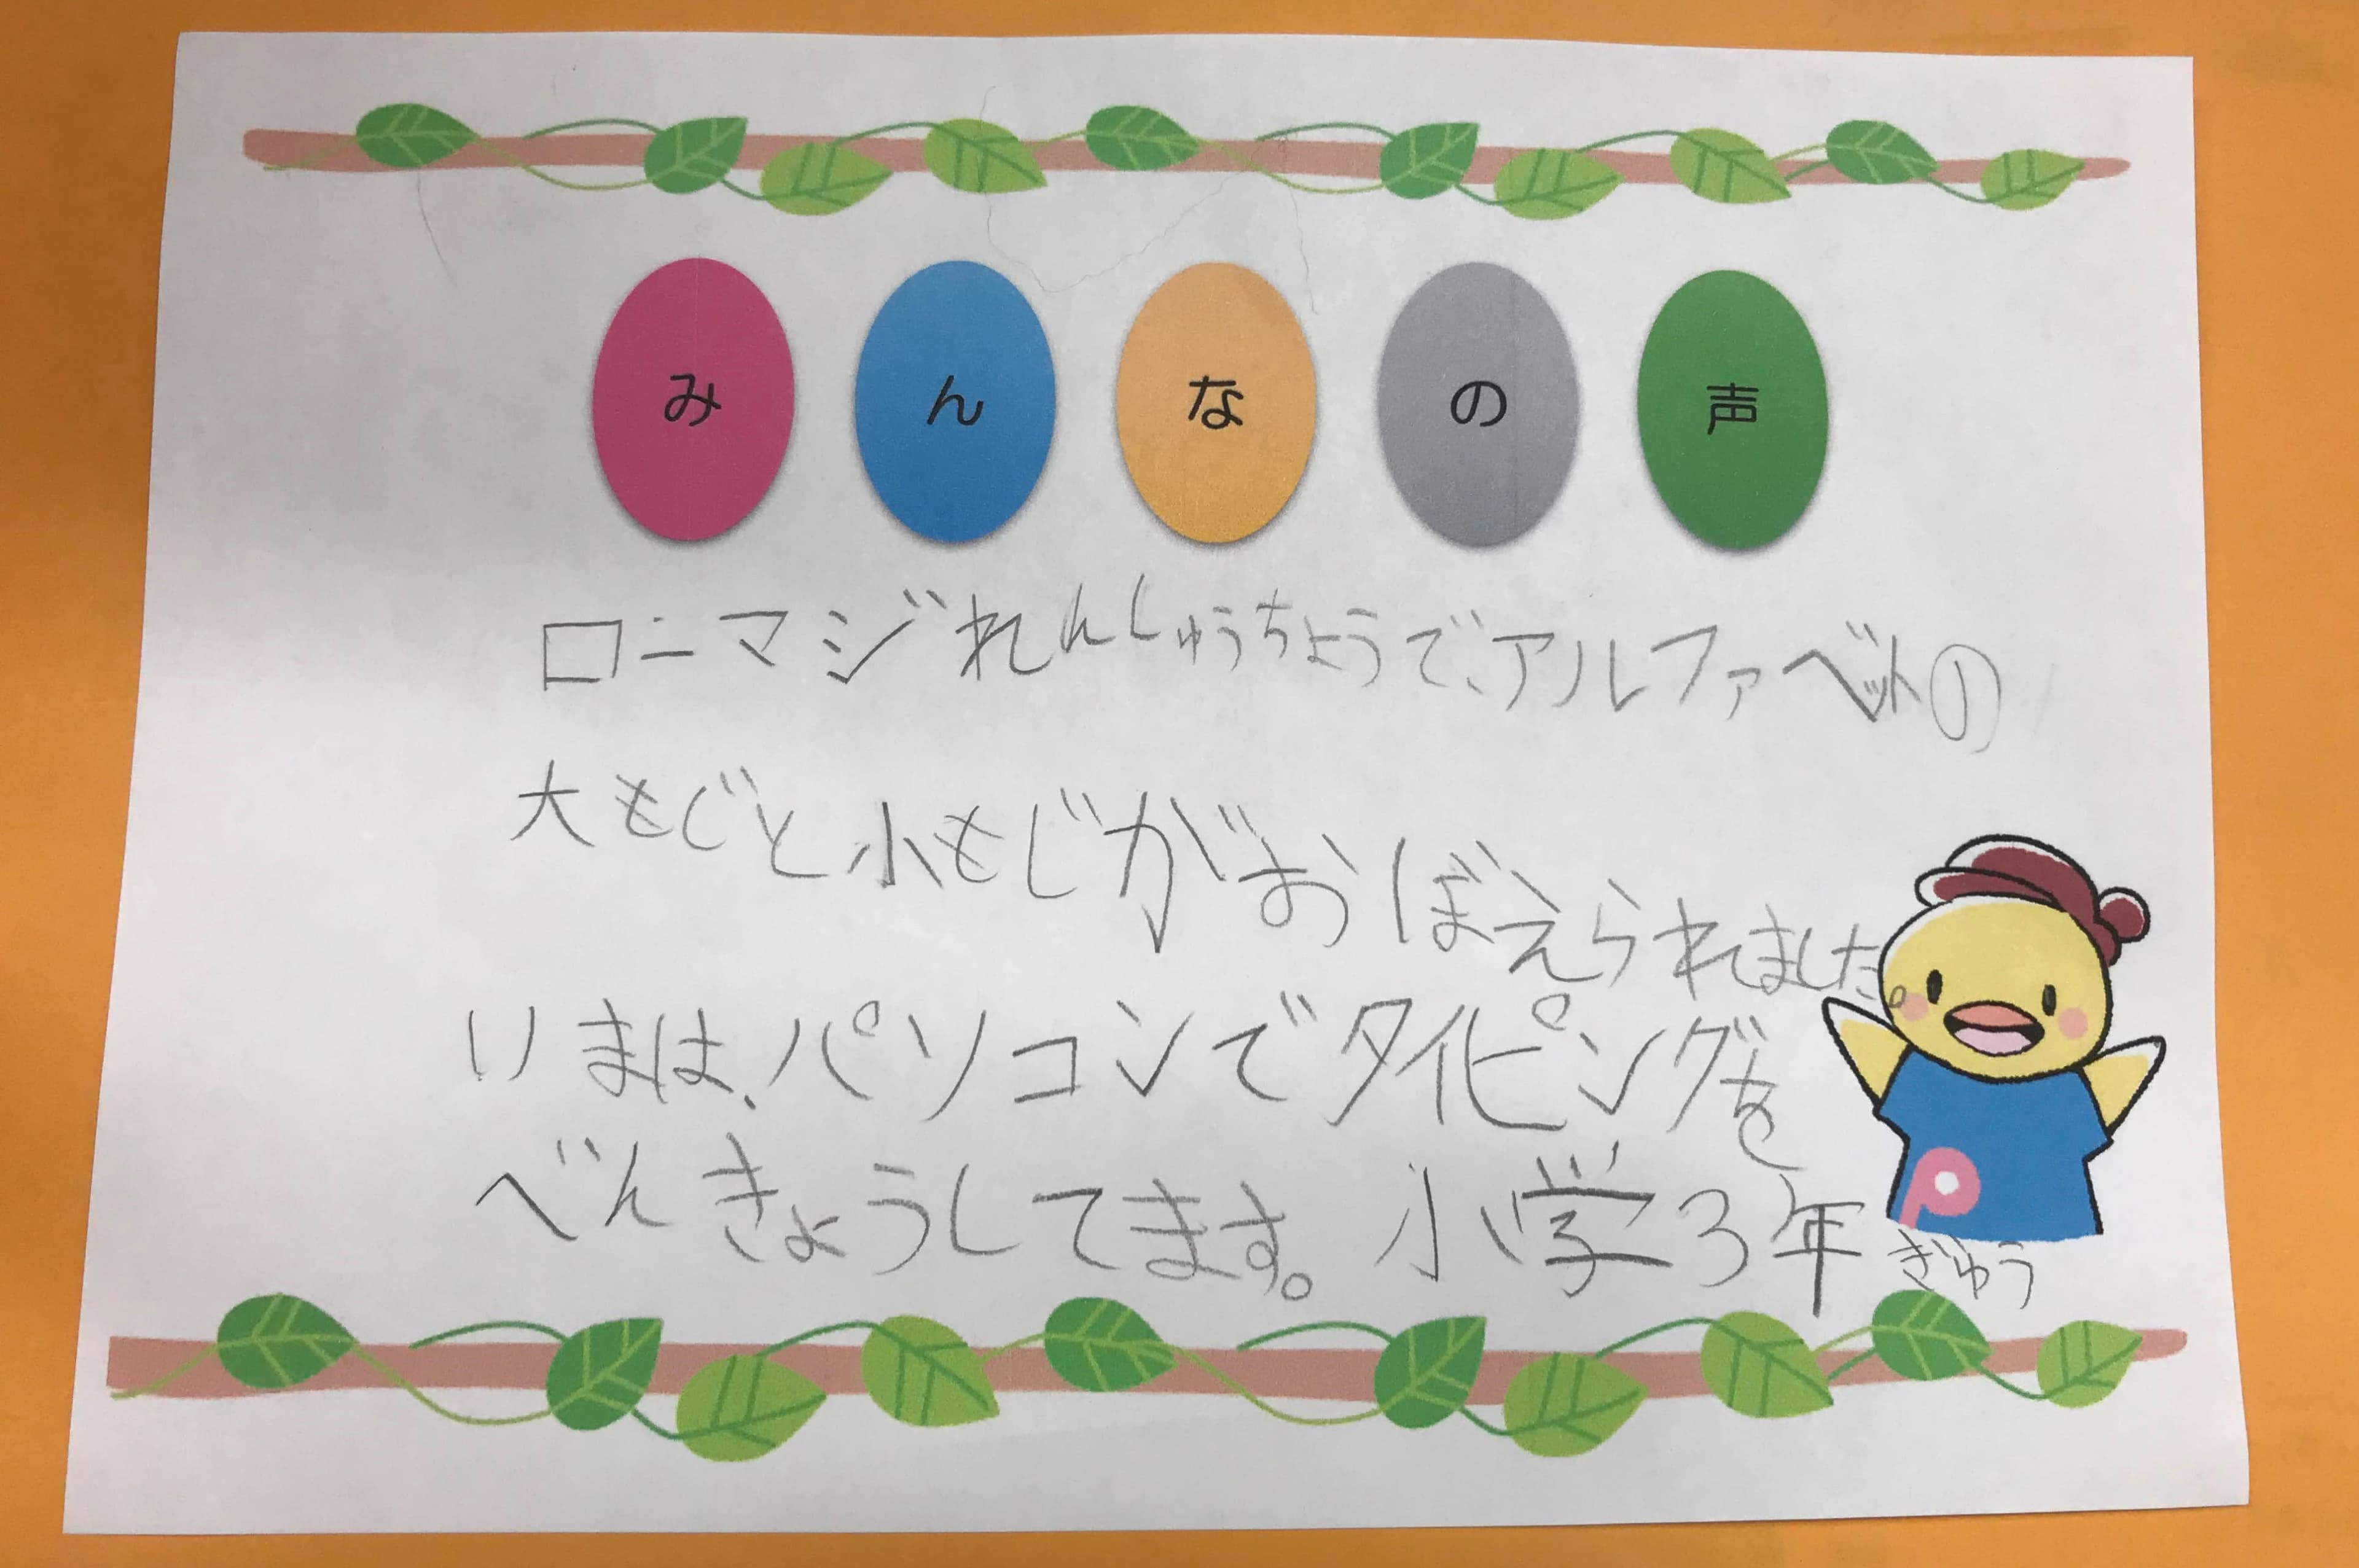 みんなの声
ローマジれんしゅうちょうで、アルファベットの
大もじと小もじがおぼえられました。
いまは、パソコンでタイピングを
べんきょうしてます。小学3年 ぎゅう
P